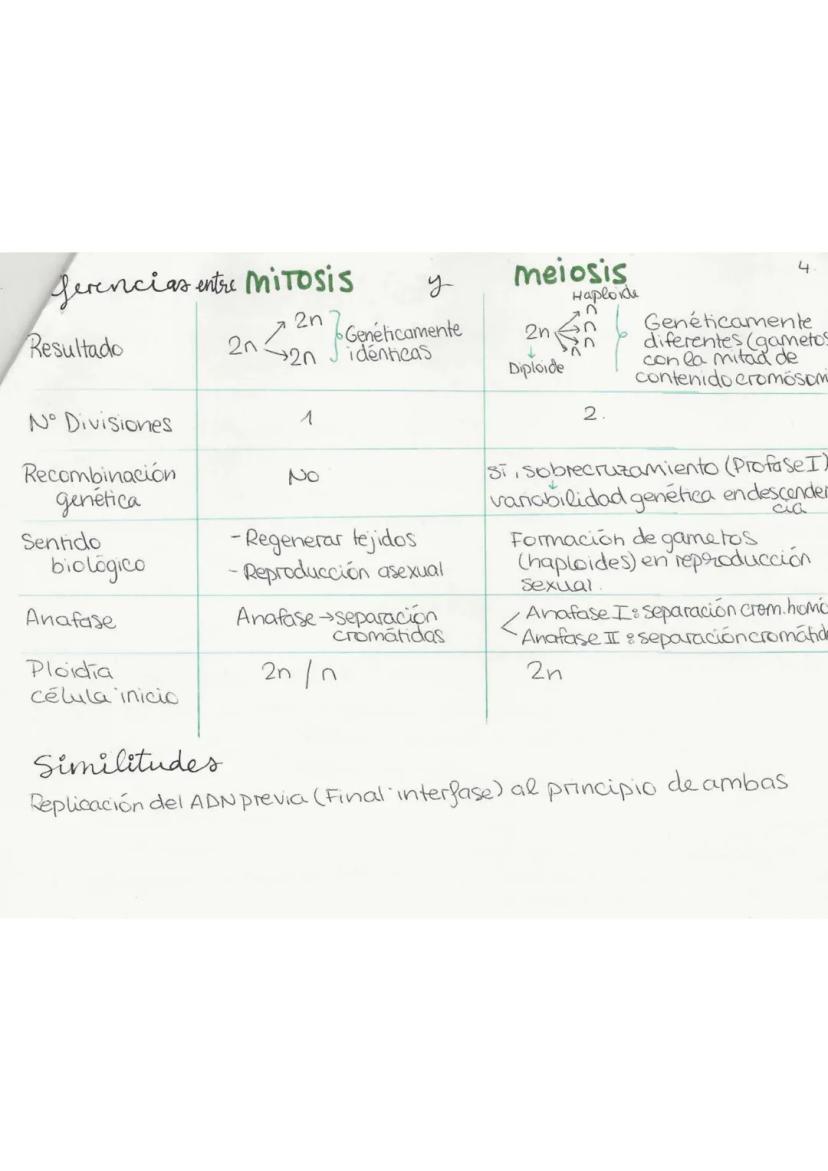 ferencias entre MITOSIS y meiosis 4
Resultado
2n → 2n
→ 2n
Genéticamente
idénticas
Haploide
2n
n
n
n
n
Diploide
Genéticamente
diferentes (gametos
con la mitad de
contenido cromósom
Nº Divisiones 1 2.
Recombinación
genética
No
sī, sobrecruzamiento (Profase I)
variabilidad genética en descenden
cia
Sentido
biológico
- Regenerar tejidos
- Reproducción asexual
Formación de gametos
(haploides) en reproducción
sexual.
Anafase
Anafase → separación
cromátidas
Anafase I: separación crom. homó
Anafase II: separación cromátid
Ploidía
célula inicio
2n / n
2n
Similitudes
Replicación del ADN previa (Final interfase) al principio de ambas